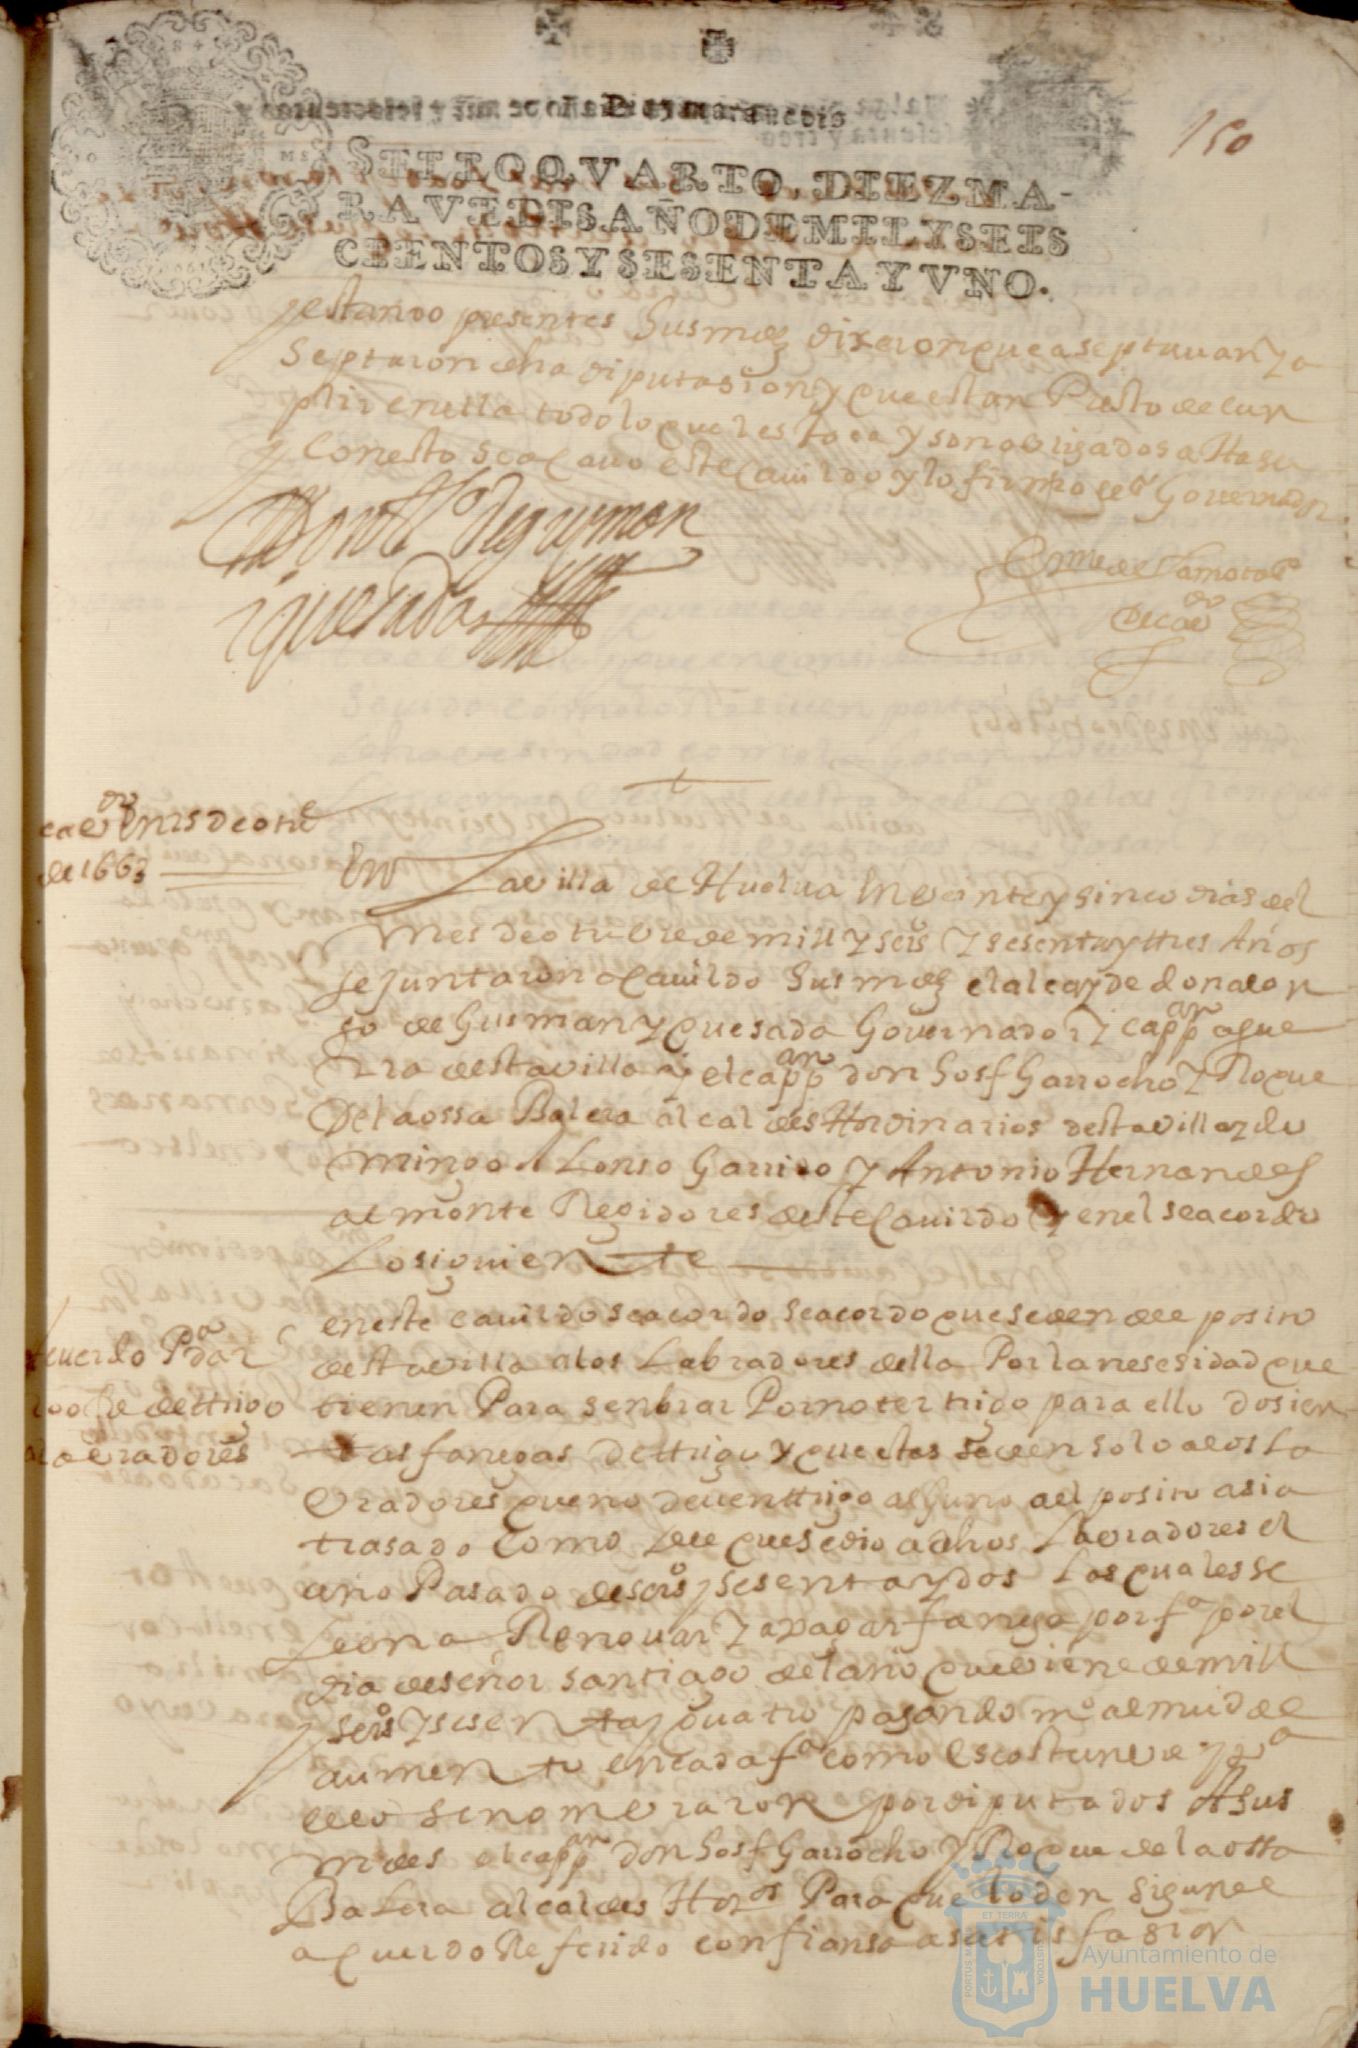 150
SELLO QVARTO, DIEZ MA-
RAVEDIS, AÑO DE MIL Y SEIS
CIENTOS Y SESENTA Y VNO.
y estando presentes Susmds dixeron que aseptavan y a
septaron dha diputasion y que estan Presto de cun
plir en ella todo lo que les toca y son obligados a Hasu
y Con esto se acavo este Cavildo y lo firmo el Governador
Don Alº de gusman
i quesada
cavdo en 25 de otue
de 1663
En La villa de Huelva En veinte y sinco dias del
Mes de otubre de mill y seisº y sesenta y tres Años
se juntaron a Cavildo Susmds el alcayde don alon
so de Gusman y quesada Governador y cappan a gue
rra desta villa y el cappan don Josf Garrocho y Roque
De la ossa Balera alcaldes Hordinarios desta villa y do
mingo Alonso Garrido y Antonio Hernandes
almonte Regidores deste Cavildo y en el se acordo
Lo siguiente
Acuerdo Pa dar
200 fs de ttrigo
a labradores
en este cavildo se acordo se acordo que se den del posito
desta villa a los Labradores della Por la nesesidad que
tienen Para senbrar Por no ter trigo para ello dosien
tas fanegas de ttrigo y que estas se den solo a los La
bradores que no deven ttrigo alguno al posito asia
trasado Como del que se dio a dhos Labradores el
año Pasado de seisº y sesenta y dos Los quales se
Renovar y a pagar fanega por fa por el
dia de señor Santiago del año que viene de mill
y seisº y sesenta y quatro pagando mº almud de
aumento en cada fa como es costunbre y pa
ello se nombraron por diputados A Sus
mdes el cappan don Josf Garrocho y Roque de la ossa
Balera alcaldes Horos Para que lo den sigun el
aquerdo Referido con fiansa a satisfasion
Ayuntamiento de
HUELVA